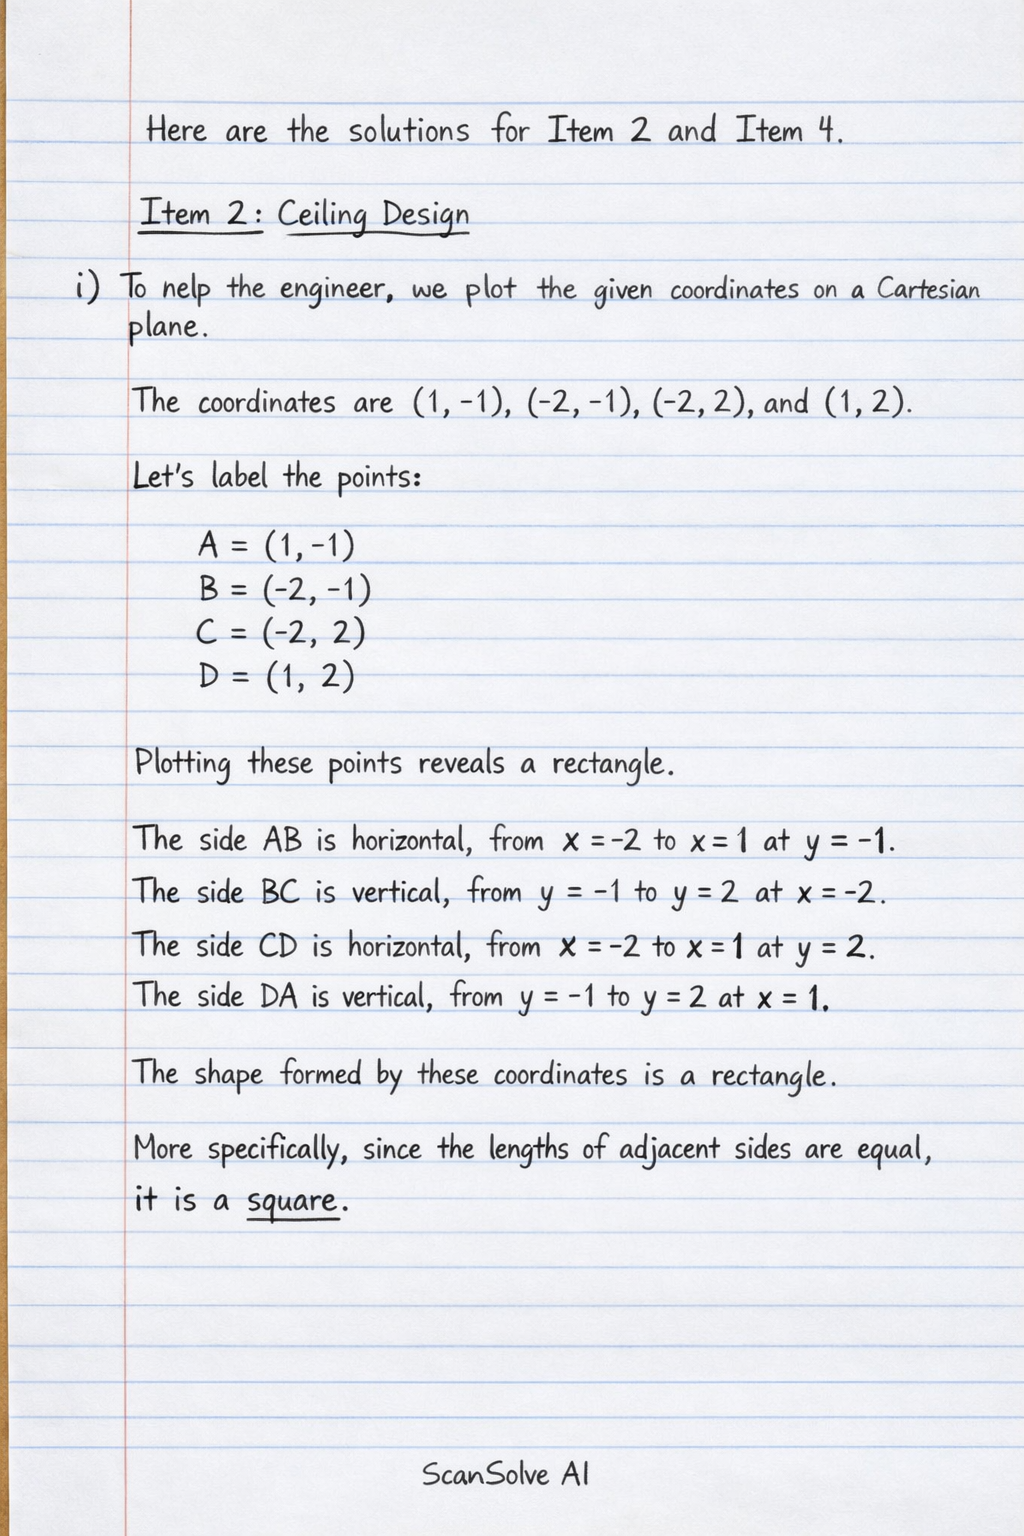 Here are the solutions for Item 2 and Item 4.
Item 2: Ceiling Design
i) To nelp the engineer, we plot the given coordinates on a Cartesian
plane.
The coordinates are (1, -1), (-2, -1), (-2, 2), and (1, 2).
Let's label the points:
A = (1, -1)
B = (-2, -1)
C = (-2, 2)
D = (1, 2)
Plotting these points reveals a rectangle.
The side AB is horizontal, from x = -2 to x = 1 at y = -1.
The side BC is vertical, from y = -1 to y = 2 at x = -2.
The side CD is horizontal, from x = -2 to x = 1 at y = 2.
The side DA is vertical, from y = -1 to y = 2 at x = 1.
The shape formed by these coordinates is a rectangle.
More specifically, since the lengths of adjacent sides are equal,
it is a square.
ScanSolve AI